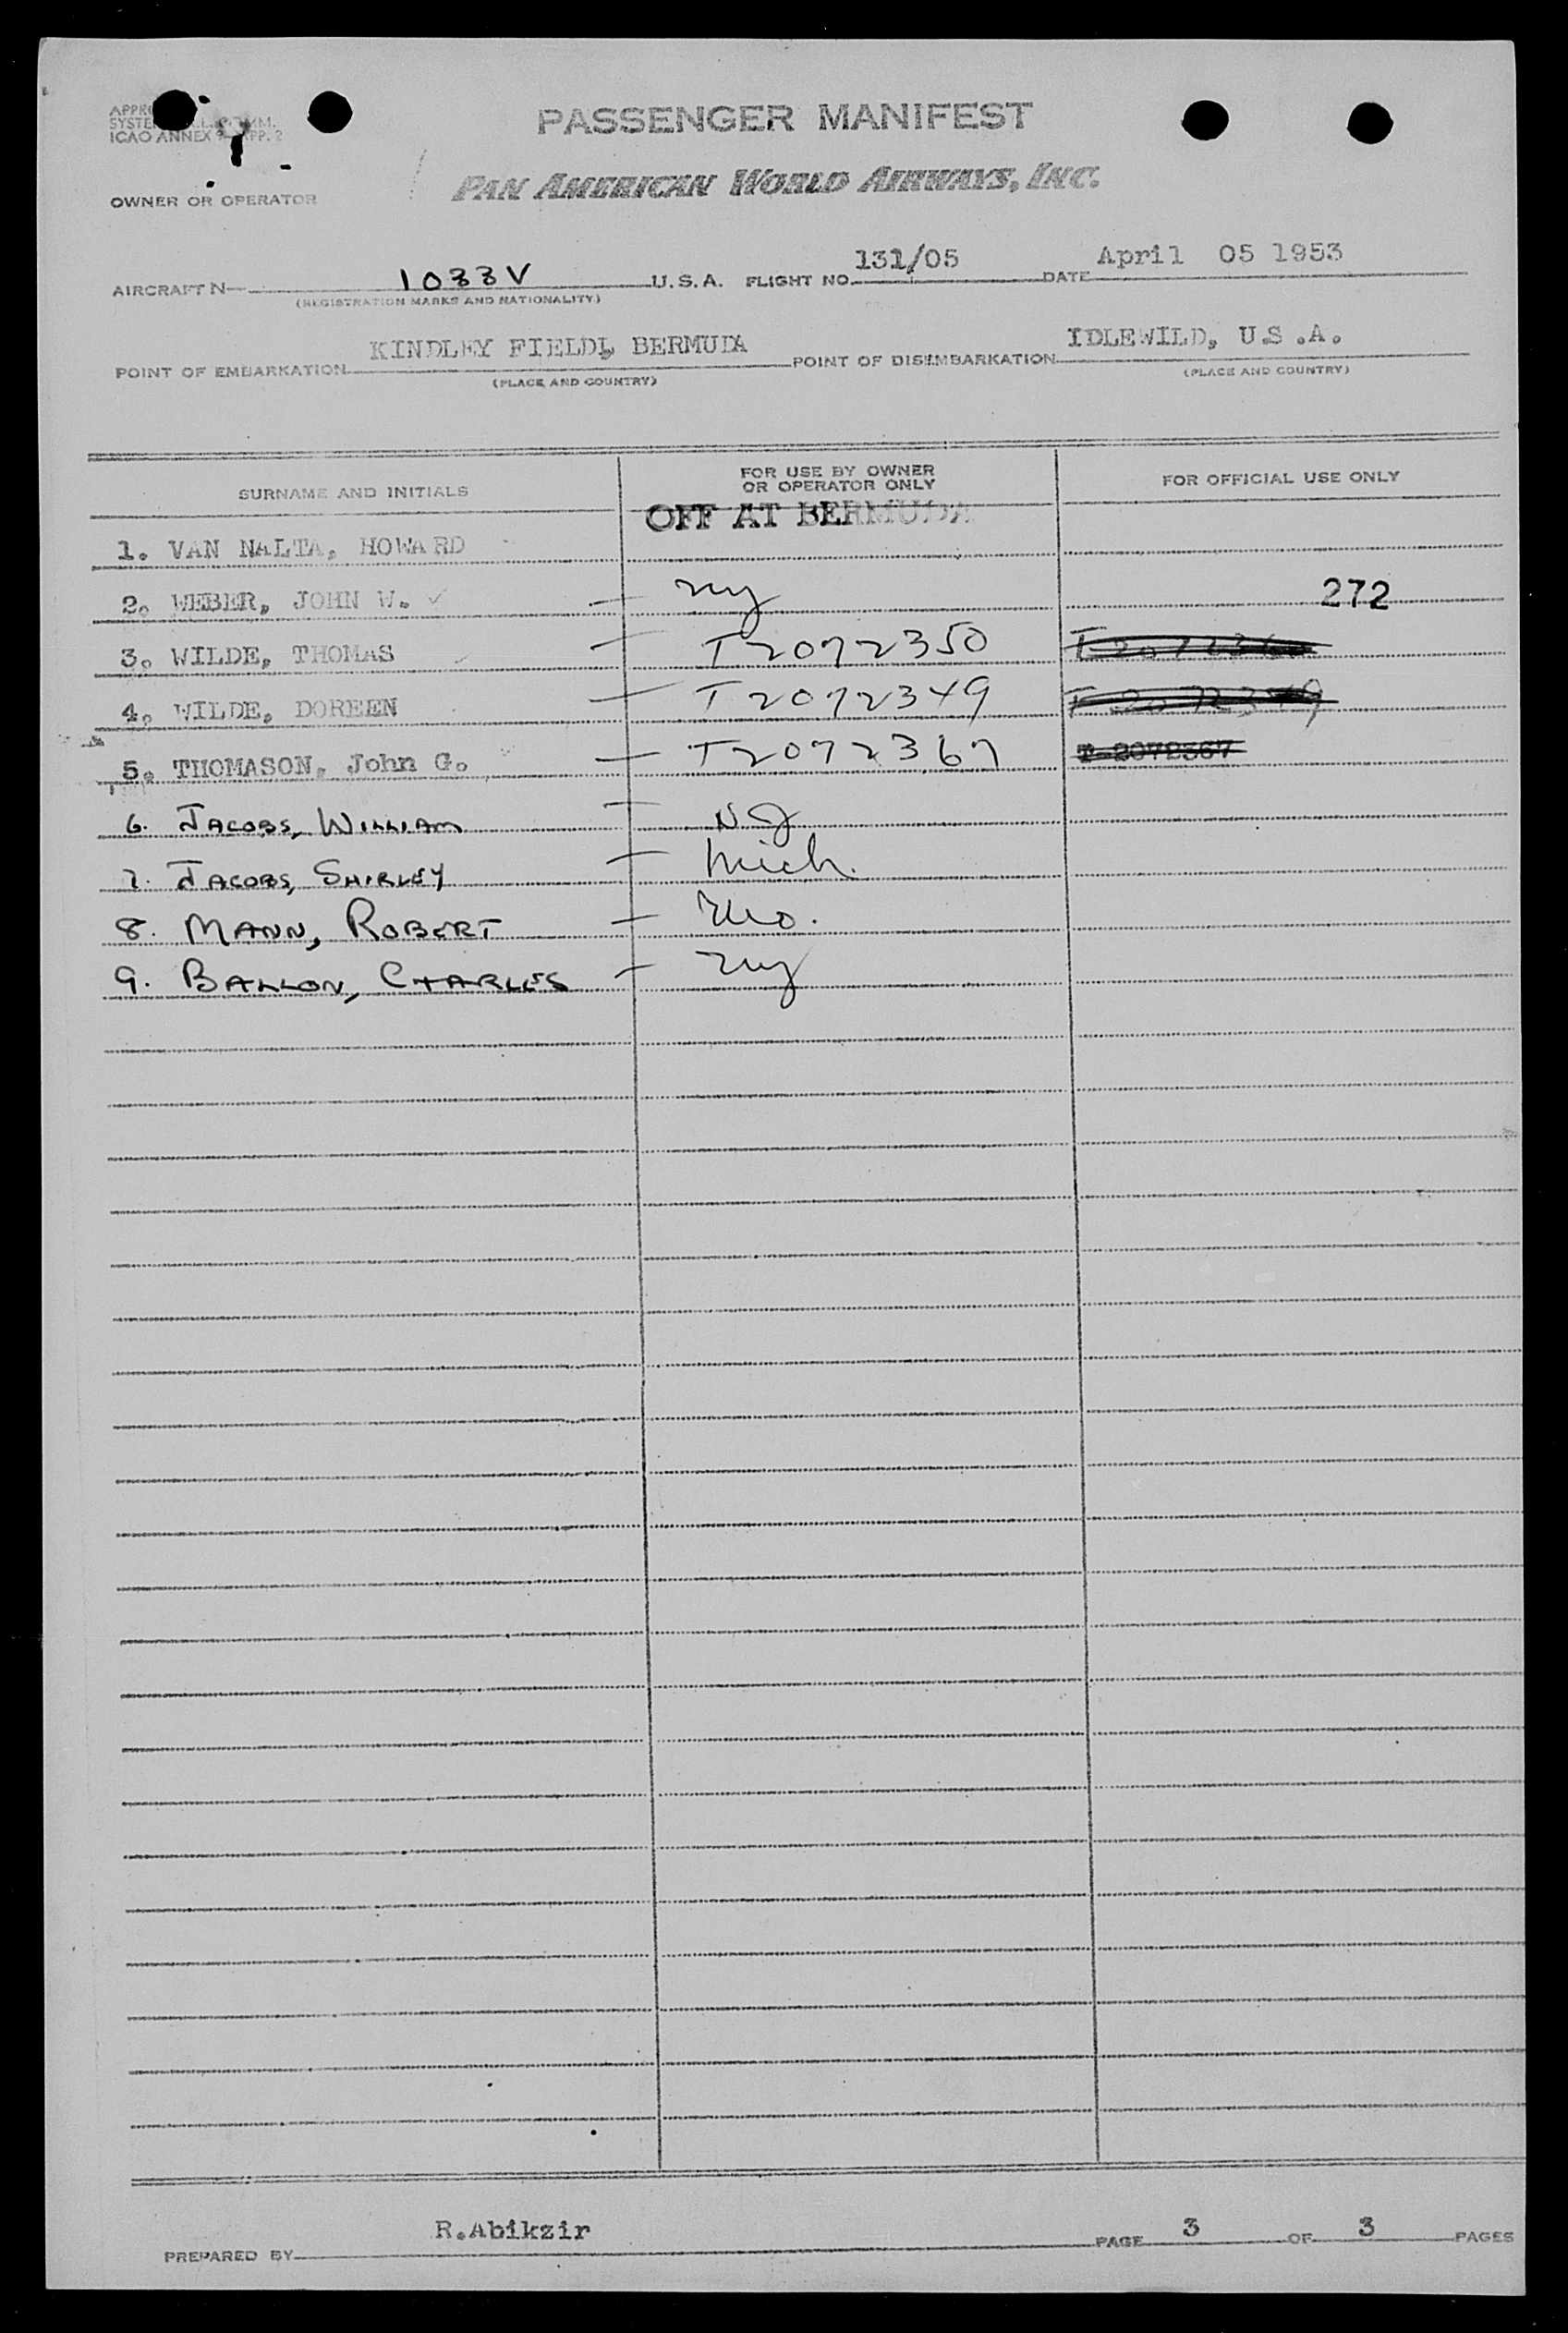 PASSENGER MANIFEST
ICAO ANNEX
OWNER OR OPERATOR
PAN AMERICAN WORLD AIRWAYS, INC.
AIRCRAFT N 1033V U.S.A. FLIGHT NO. 131/05 DATE April 05 1953
(REGISTRATION MARKS AND NATIONALITY)
POINT OF EMBARKATION KINDLEY FIELD, BERMUDA POINT OF DISEMBARKATION IDLEWILD, U.S.A.
(PLACE AND COUNTRY) (PLACE AND COUNTRY)
SURNAME AND INITIALS FOR USE BY OWNER OR OPERATOR ONLY FOR OFFICIAL USE ONLY
OFF AT BERMUDA
1. VAN NALTA, HOWARD
2. WEBER, JOHN W. ✓ — NY 272
3. WILDE, THOMAS — T2072350
4. WILDE, DOREEN — T2072349 T 2072349
5. THOMASON, John G. — T2072367 T-2072367
6. JACOBS, WILLIAM — NJ
7. JACOBS, SHIRLEY — Mich.
8. MANN, ROBERT — Mo.
9. BALLON, CHARLES — NY
PREPARED BY R.Abikzir PAGE 3 OF 3 PAGES